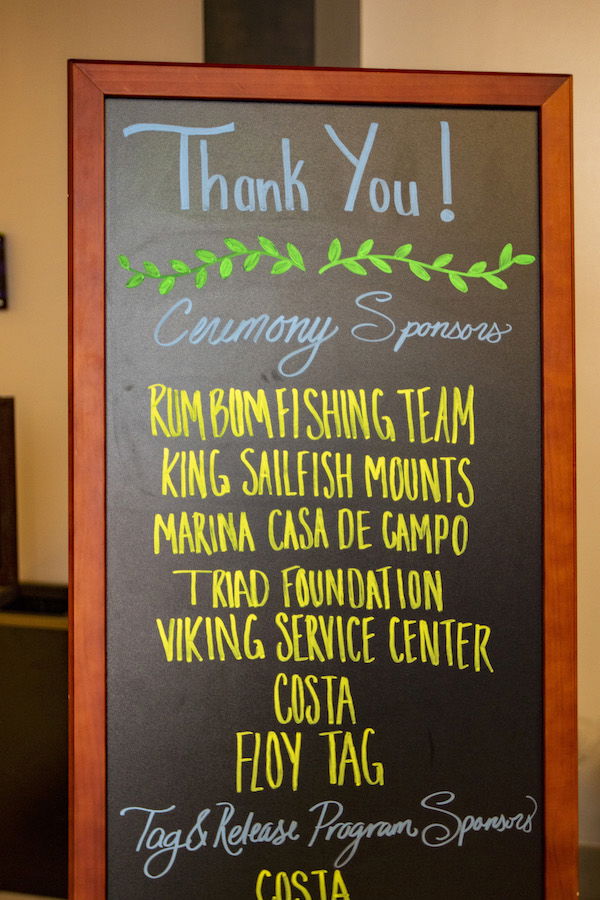 Thank You!
Ceremony Sponsors
RUM BUM FISHING TEAM
KING SAILFISH MOUNTS
MARINA CASA DE CAMPO
TRIAD FOUNDATION
VIKING SERVICE CENTER
COSTA
FLOY TAG
Tag & Release Program Sponsors
COSTA